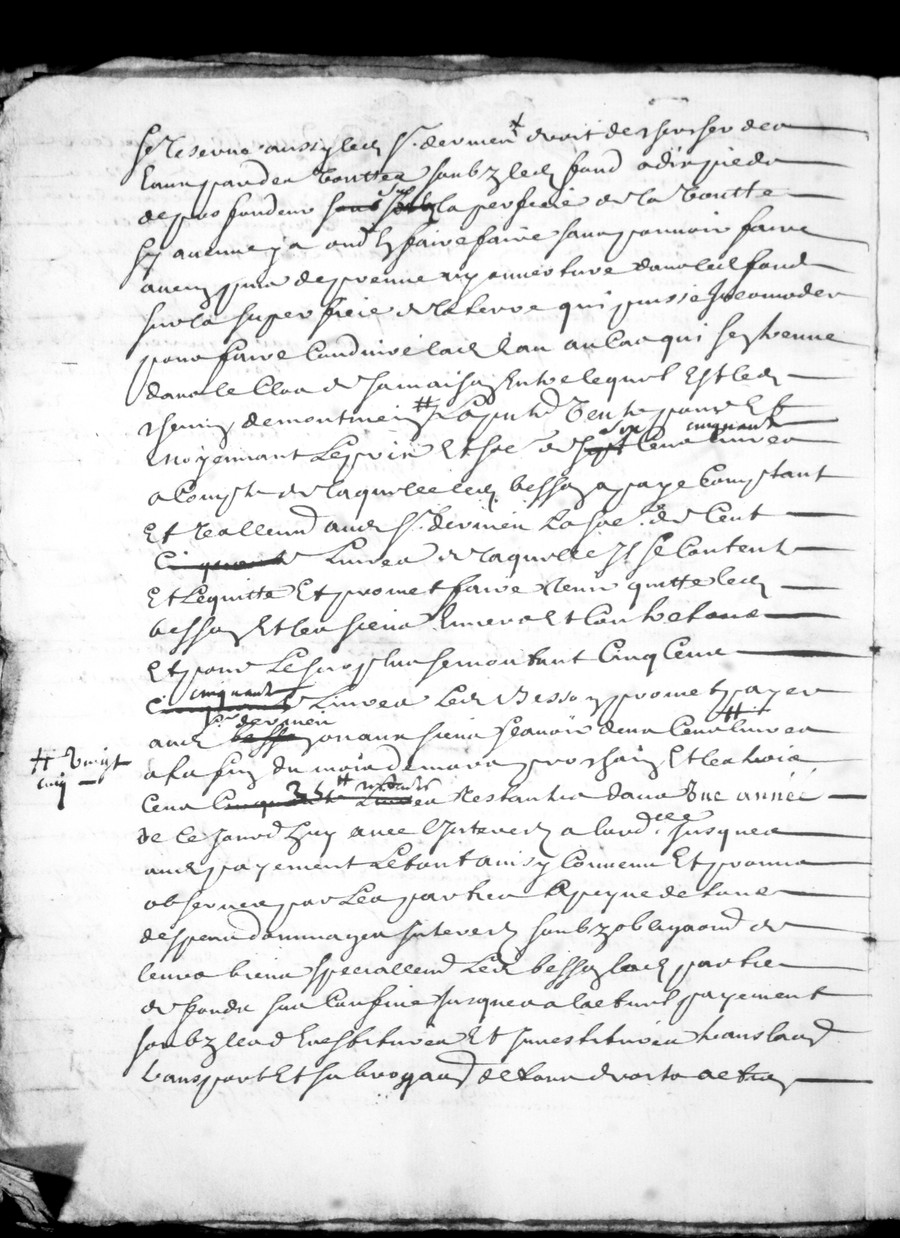 Se Reserve aussy led Sr. dermen droit de chercher des
Eaux par des Voutes soubz led fond a dix pieds
de profondeur sous la perficie de la Voutte
sy aucune y a ou de faire faire sans pouvoir faire
aucune ouverture dans led fond
sur la superficie de la terre qui puisse Incomoder
pour faire Conduire lad Eau au Lac qui se trouve
dans le Clos de sa maison Entre lequel Est led
chemin de montmein # La pnte Vente pour Et
moyennant Le prix Et soe de six Cens cinquante livres
a Compte de laquelle led besson a paye Comptant
Et reallemt aud Sr. dermen La soe de Cent
Livres de laquelle Il se Contente
Et Lequitte Et promet faire tenir quitte led
besson Et les siens Envers Et Contre tous
Et pour Le surplus se montant Cinq Cens
cinquante Livres Led Besson promet payer
aud Sr. dermen ou aux siens sçavoir deux Cens # livres
# Vingt
cinq
a la fin du mois de mars prochain Et les trois
Cens 25 # restantes Restantes dans Une année
de Ce jourd'huy avec l'Interest a lord.ce Jusques
aud payement Le tout ainsy Convenu Et promis
observer par Les parties a peyne de tous
despens dommages Interest soubz obligaond de
leurs biens speciallemt Led besson lad partie
de fonds sus Confine Jusques a lactuel payement
soubz les d Evestitures Et Investitures translaond
transport Et subrogaond de tous droits actions